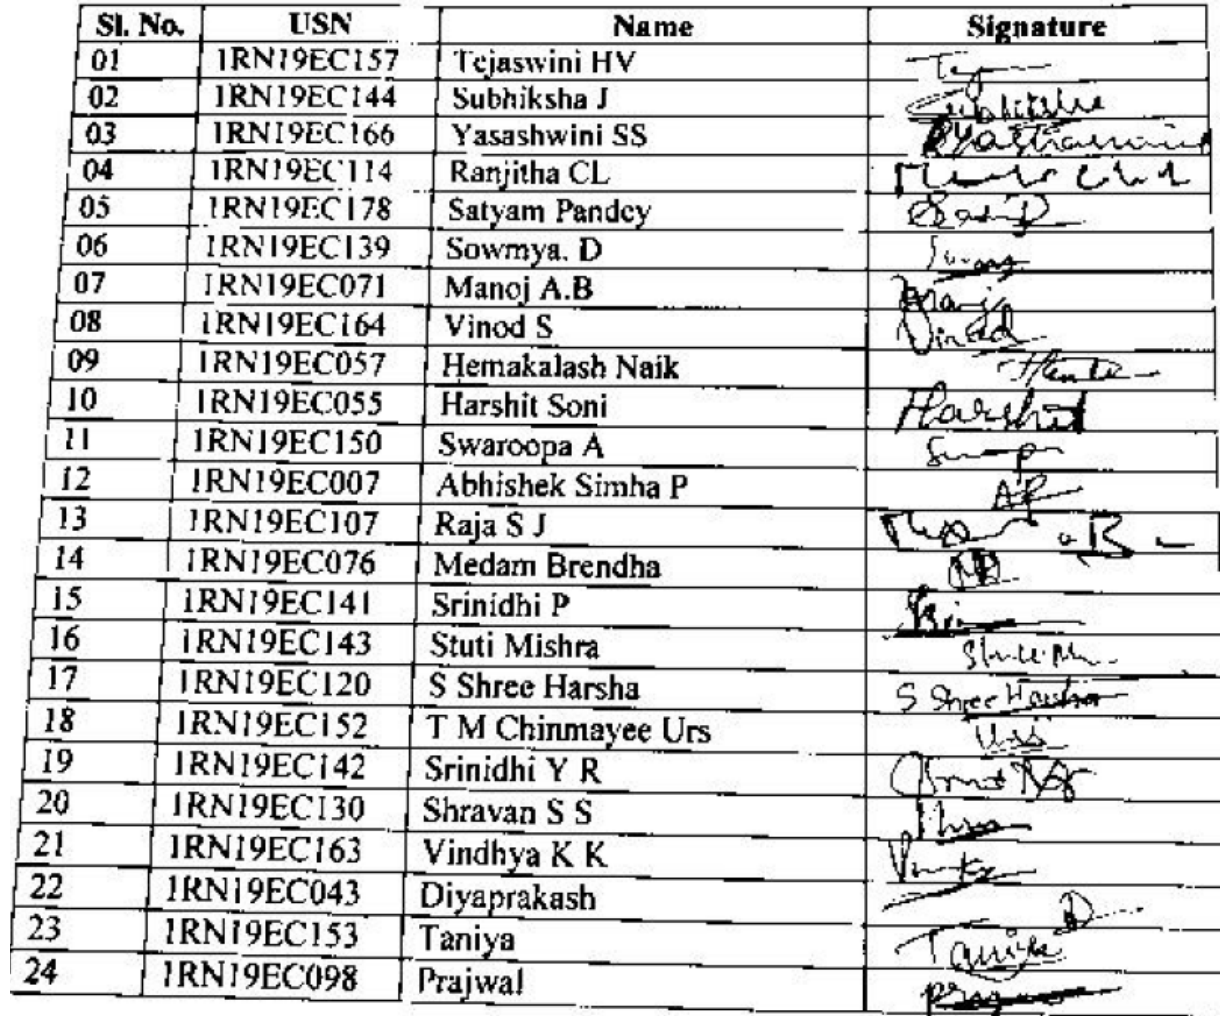 Sl. No. USN Name Signature
01 1RN19EC157 Tejaswini HV
02 1RN19EC144 Subhiksha J Subhiksha
03 1RN19EC166 Yasashwini SS
04 1RN19EC114 Ranjitha CL
05 1RN19EC178 Satyam Pandey
06 1RN19EC139 Sowmya. D
07 1RN19EC071 Manoj A.B Manoj
08 1RN19EC164 Vinod S Vinod
09 1RN19EC057 Hemakalash Naik
10 1RN19EC055 Harshit Soni Harshit
11 1RN19EC150 Swaroopa A
12 1RN19EC007 Abhishek Simha P
13 1RN19EC107 Raja S J
14 1RN19EC076 Medam Brendha
15 1RN19EC141 Srinidhi P
16 1RN19EC143 Stuti Mishra
17 1RN19EC120 S Shree Harsha S Shree Harsha
18 1RN19EC152 T M Chinmayee Urs
19 1RN19EC142 Srinidhi Y R
20 1RN19EC130 Shravan S S
21 1RN19EC163 Vindhya K K
22 1RN19EC043 Diyaprakash
23 1RN19EC153 Taniya Taniya
24 1RN19EC098 Prajwal